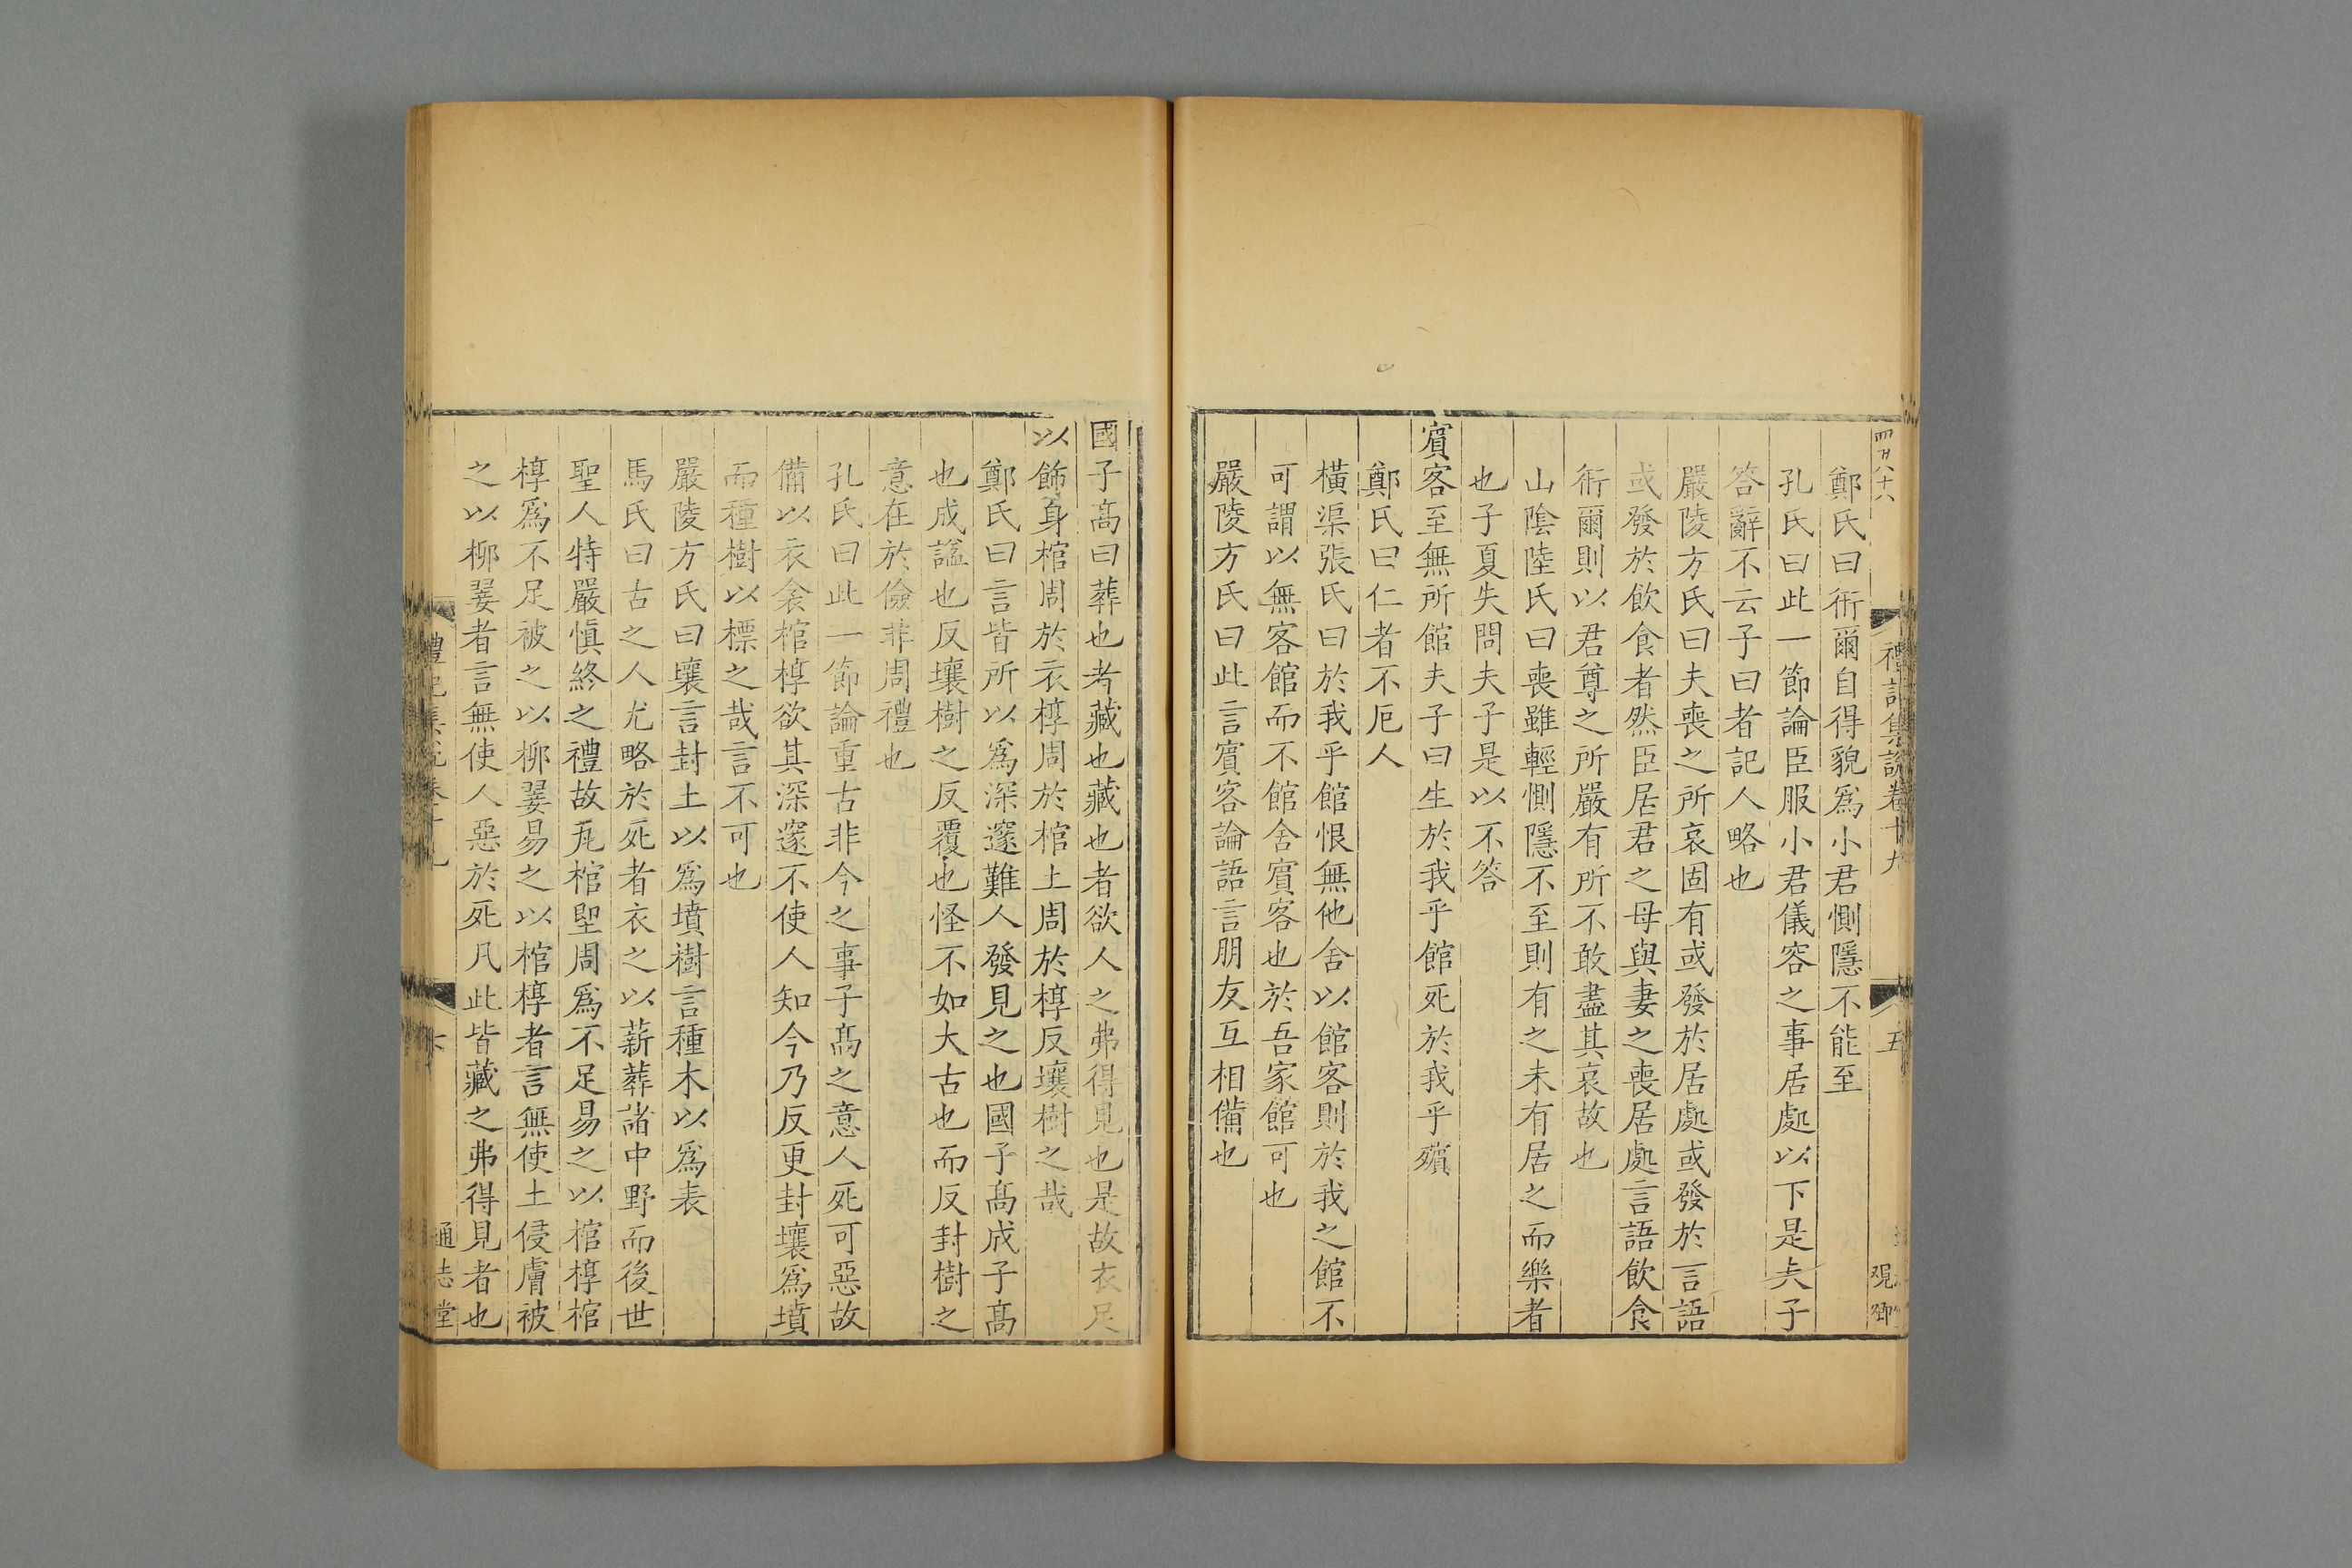 禮記集說卷十九
五
鄭氏曰衎爾自得貌爲小君惻隱不能至
孔氏曰此一節論臣服小君儀容之事居處以下是夫子
答辭不云子曰者記人略也
嚴陵方氏曰夫喪之所哀固有或發於居處或發於言語
或發於飲食者然臣居君之母與妻之喪居處言語飲食
衎爾則以君尊之所嚴有所不敢盡其哀故也
山陰陸氏曰喪雖輕惻隱不至則有之未有居之而樂者
也子夏失問夫子是以不答
賓客至無所館夫子曰生於我乎館死於我乎殯
鄭氏曰仁者不厄人
橫渠張氏曰於我乎館恨無他舍以館客則於我之館不
可謂以無客館而不館舍賓客也於吾家館可也
嚴陵方氏曰此言賓客論語言朋友互相備也
國子高曰葬也者藏也藏也者欲人之弗得見也是故衣足
以飾身棺周於衣椁周於棺土周於椁反壤樹之哉
鄭氏曰言皆所以爲深邃難人發見之也國子高成子高
也成謚也反壤樹之反覆也怪不如大古也而反封樹之
意在於儉非周禮也
孔氏曰此一節論重古非今之事子高之意人死可惡故
備以衣衾棺椁欲其深邃不使人知今乃反更封壤爲墳
而種樹以標之哉言不可也
嚴陵方氏曰壤言封土以爲墳樹言種木以爲表
馬氏曰古之人尤略於死者衣之以薪葬諸中野而後世
聖人特嚴愼終之禮故瓦棺堲周爲不足易之以棺椁棺
椁爲不足被之以柳翣易之以棺椁者言無使土侵膚被
之以柳翣者言無使人惡於死凡此皆藏之弗得見者也
禮記集說卷十九
六
通志堂